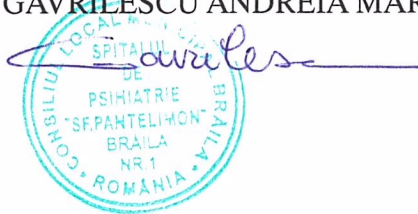 GAVRILESCU ANDREIA MAR
Gavrilesc
CONSILIUL LOCAL MUNICIPAL BRAILA
SPITALUL
DE
PSIHIATRIE
"SF.PANTELIMON"
BRAILA
NR.1
* ROMÂNIA *